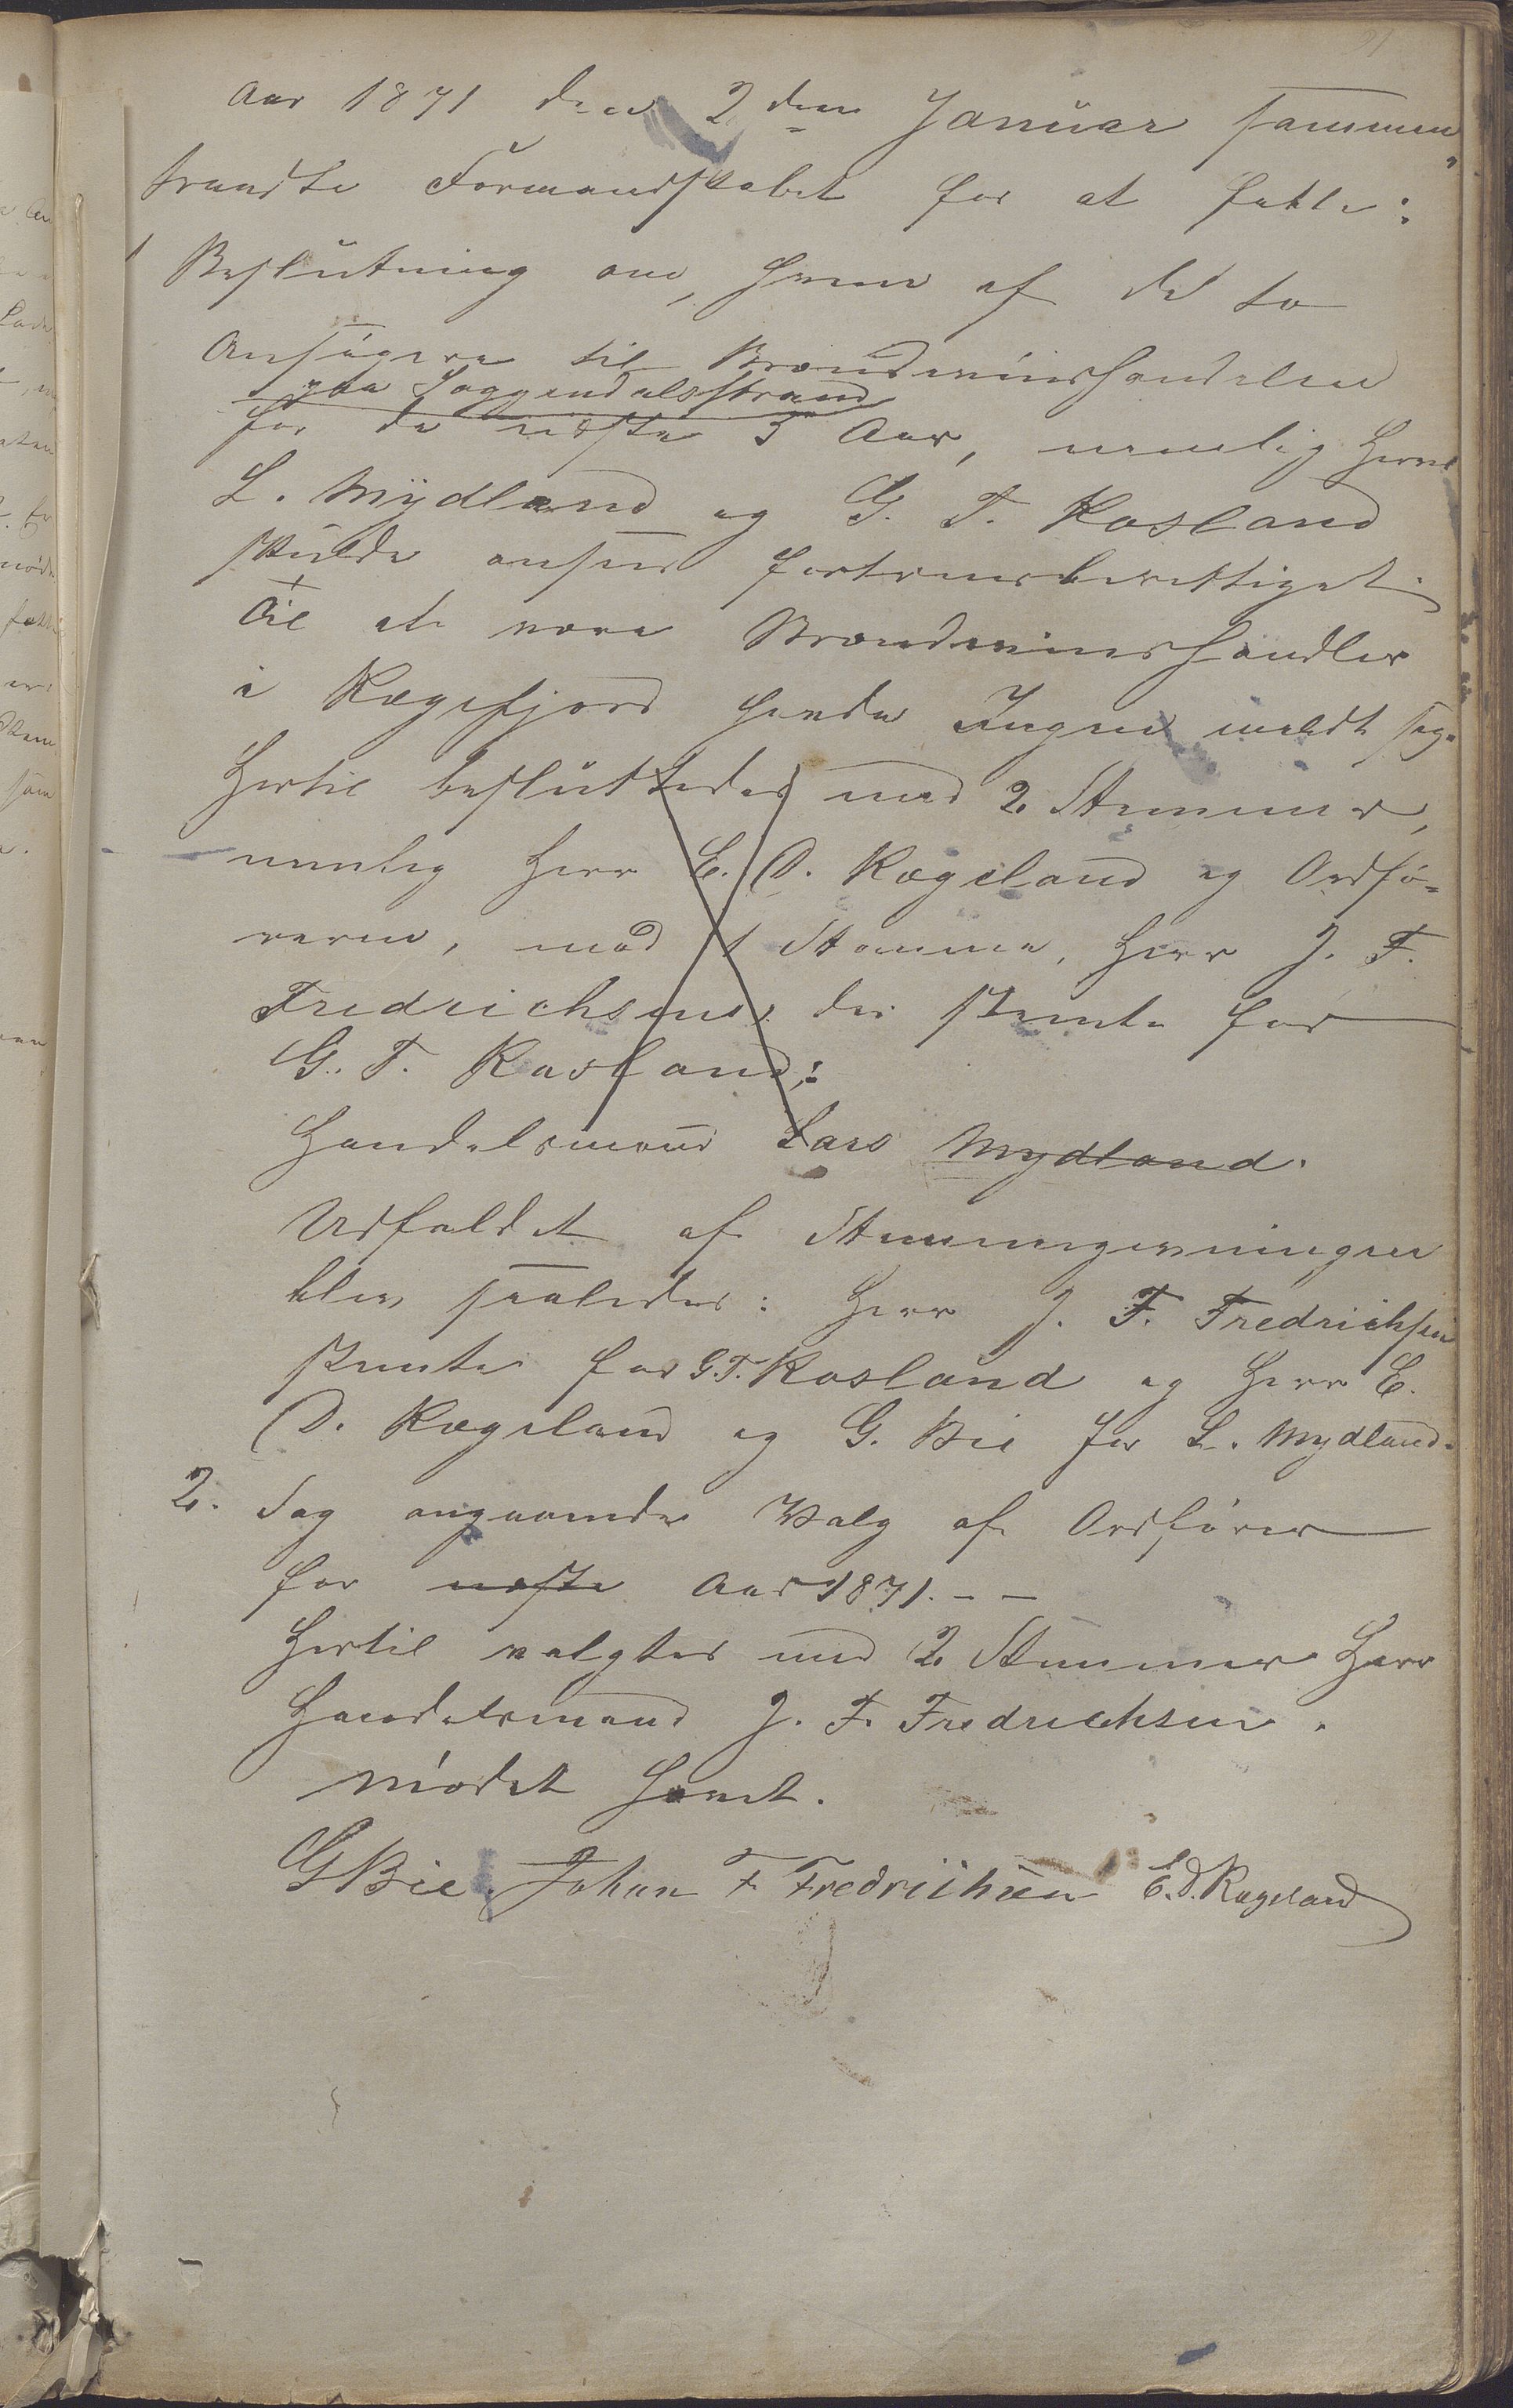 Aar 1871 den 2den Januar sammen„
traadte Formandskabet for at fatte:
1 Beslutning om, hvem af de to
Ansøgere til Brændevinshandelen
paa Soggendalsstrand
for de næste 3 Aar, nemlig Herrer
L. Mydland og G. T. Rosland
skulde ansees fortrinsberettiget.
Til at være Brændevinshandler
i Rægefjord havde Ingen meldt sig.
Hertil besluttedes med 2 Stemmer,
nemlig Herr E. D. Rægeland og Ordfø-
reren, mod 1 Stemme, Herr J. F.
Fredrichsen, der stemte for
G. T. Rosland,:
Handelsmand Lars Mydland.
Udfaldet af Stemmegivningen
blev saaledes: Herr J. F. Fredrichsen
stemte for G. T. Rosland og Herr E.
D. Rægeland og G. Bie for L. Mydland.
2. Sag angaaende Valg af Ordfører
for næste Aar 1871. - -
Hertil valgtes med 2 Stemmer Herr
Handelsmand J. F. Fredrichsen.
Mødet hævet.
GBie. Johan F Fredrichsen E. D. Rægeland